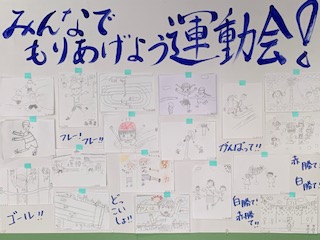 みんなで
もりあげよう運動会!
フレー!
フレー!!
がんばって!!
赤勝て!
白勝て!
ゴール!!
どっ
こい
しょ!!
白勝て!
赤勝て!!